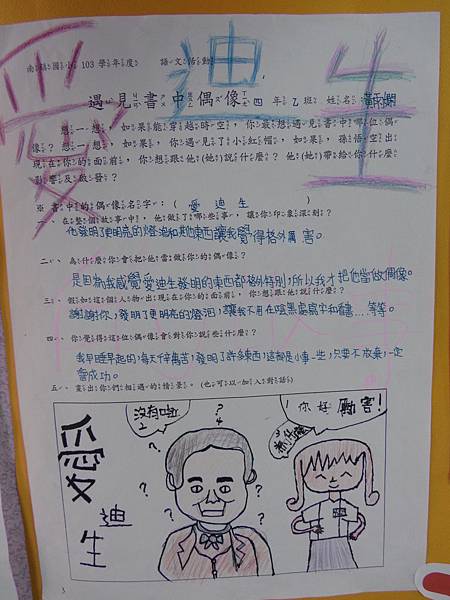 愛迪生
南鎮國小 103 學年度 語文活動
遇見書中偶像 四年乙班 姓名
想一想,如果能穿越時空,你最想遇見書中哪位偶
像?想一想,如果,你遇見了小紅帽,如果,孫悟空出
現在你的面前,你想跟他(她)說什麼?他(她)帶給你什麼
影響及啟發?
※書中的偶像名字:( 愛迪生 )
一、在整個故事中,他做了哪些事,讓你印象深刻?
他發明了更明亮的燈泡和其他東西讓我覺得格外厲害。
二、為什麼你會把他當做你的偶像?
是因為我感覺愛迪生發明的東西都格外特別,所以我才把他當做偶像。
三、假如這個人物出現在你的面前,你想跟他說什麼?
謝謝你,發明了更明亮的燈泡,讓我不用在陰黑處寫字和看書....等等。
四、你覺得這位偶像會對你說些什麼?
我早睡早起的,每天千辛萬苦,發明了許多東西,這都是小事一生,只要不放棄,一定
會成功。
五、畫出你們相遇的情景。(也可以加入對話)
愛迪生
沒有啦
你好勵害!
?
?
?
?
?
?
3